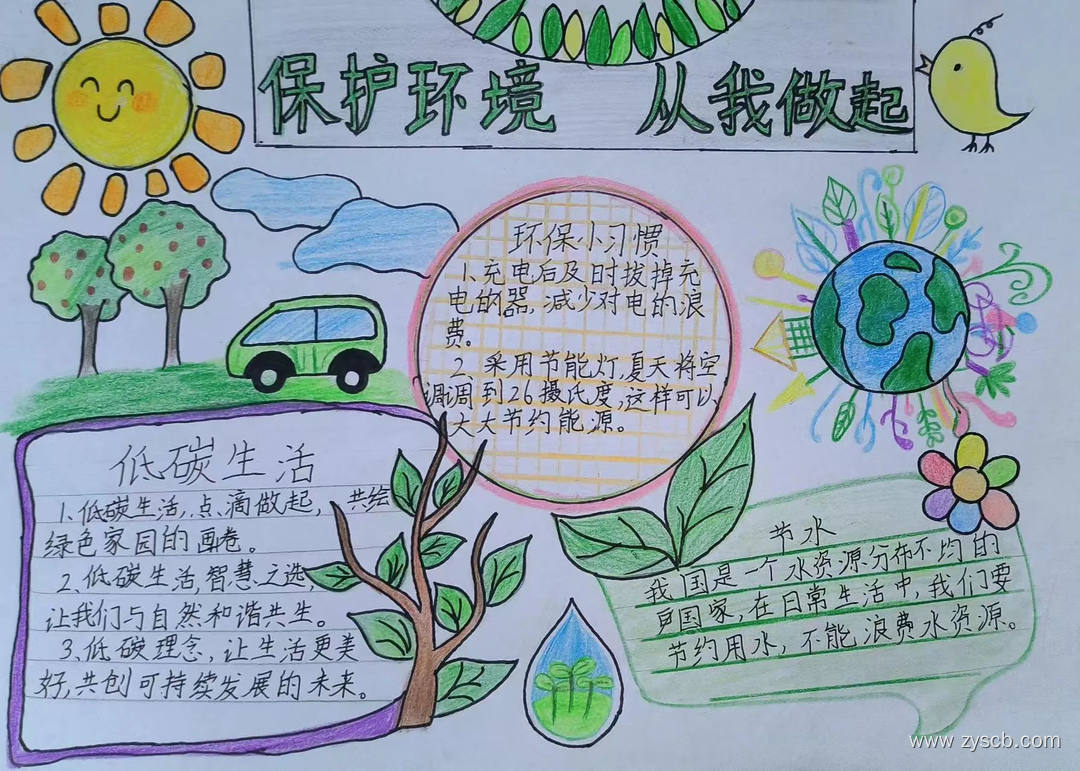 保护环境 从我做起
环保小习惯
1.充电后及时拔掉充
电的器,减少对电的浪
费。
2.采用节能灯,夏天将空
调调到26摄氏度,这样可以
大大节约能源。
低碳生活
1、低碳生活,点滴做起,共绘
绿色家园的画卷。
2、低碳生活,智慧之选,
让我们与自然和谐共生。
3、低碳理念,让生活更美
好,共创可持续发展的未来。
节水
我国是一个水资源分布不均的
国家,在日常生活中,我们要
节约用水,不能浪费水资源。
www.zyscb.com